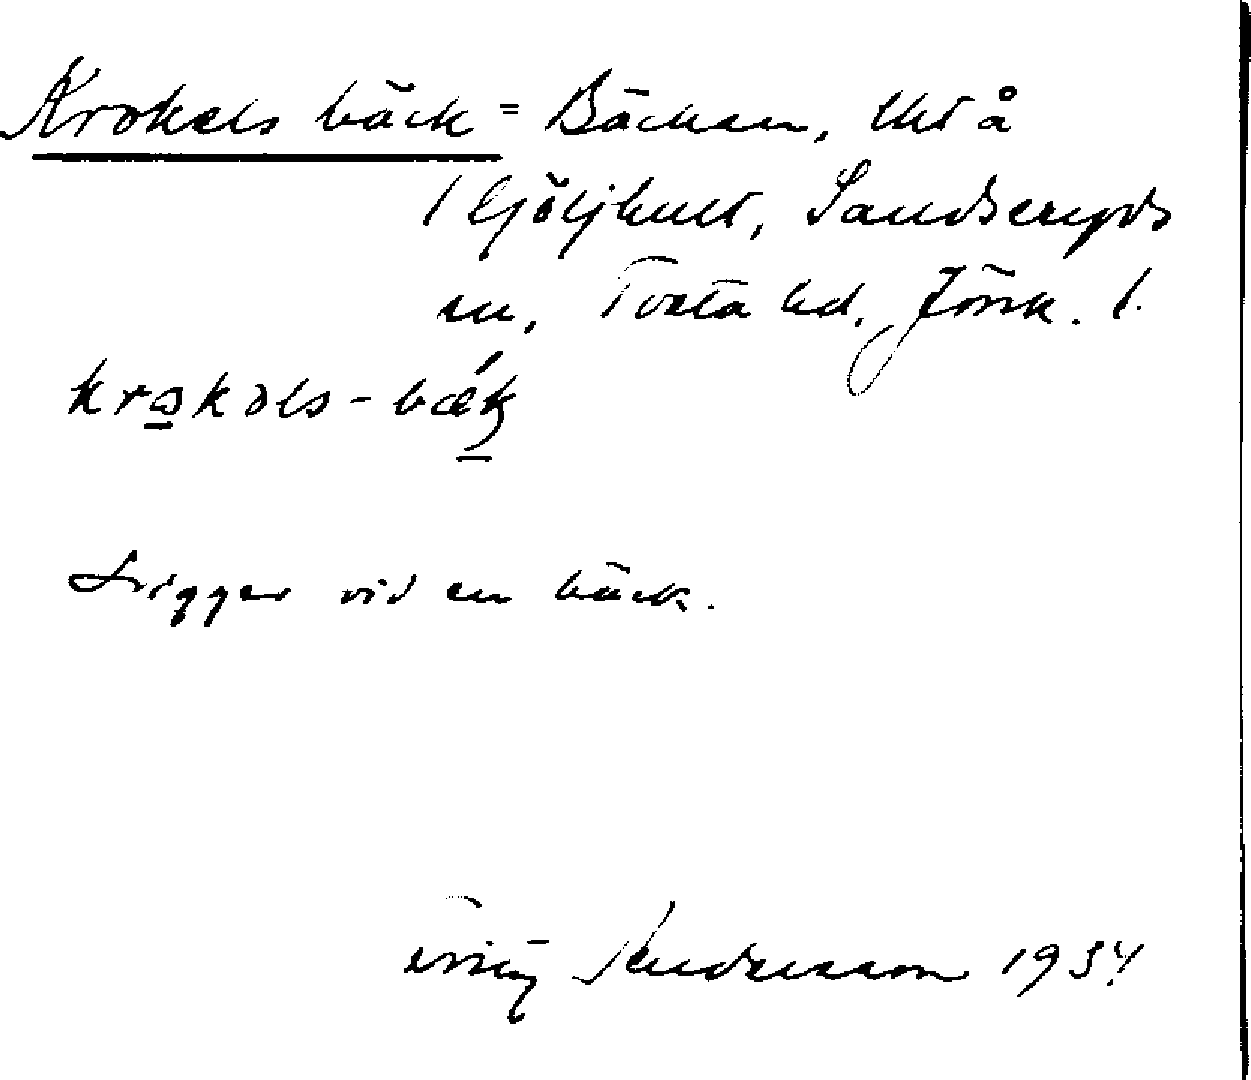 Krokels bäck = Bäcken, tht å
Göljhult, Sandseryds
sn, Tveta hd, Jönk. l.
krokəls-bæk
Ligger vid en bäck.
Andersson 1934